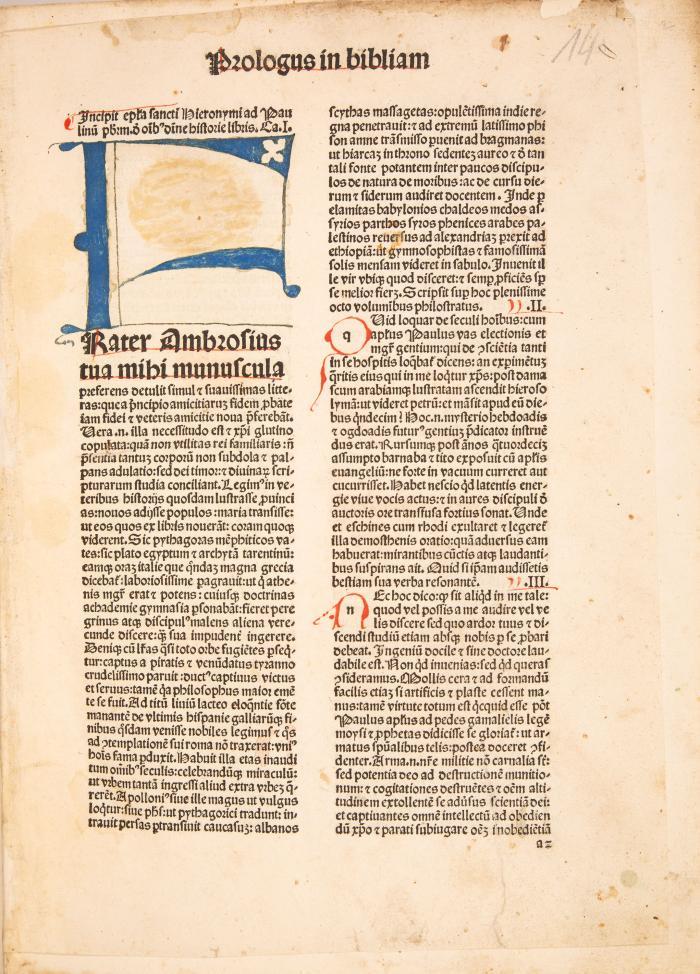 Prologus in bibliam
14
Incipit epl'a sancti Hieronymi ad Pau
linũ pb̃rm: ð oĩb⁹ dĩne historie libris. Ca.I.
FRater Ambrosius
tua mihi munuscula
preferens detulit simul ⁊ suauissimas litte-
ras: que a p̃ncipio amicitiaruꝫ fidem ꝓbate
iam fidei ⁊ veteris amicitie noua p̃ferebãt.
Uera .n. illa necessitudo est ⁊ xp̃i glutino
copulata: quã non vtilitas rei familiaris: ñ
p̃sentia tantuꝫ corporũ non subdola ⁊ pal-
pans adulatio: sed dei timor: ⁊ diuinaꝝ scri-
pturarum studia conciliant. Legim⁹ in ve-
teribus historijs quosdam lustrasse ꝓuinci
as: nouos adijsse populos: maria transisse:
ut eos quos ex libris nouerãt: coram quoqꝫ
viderent. Sic pythagoras mẽphiticos va-
tes: sic plato egyptum ⁊ archytã tarentinũ:
eamqꝫ oraꝫ italie que q̃ndaꝫ magna grecia
dicebat̃: laboriosissime ꝑagrauit: ut q̃ athe-
nis mgr̃ erat ⁊ potens: cuiusqꝫ doctrinas
achademie gymnasia ꝑsonabãt: fieret pere
grinus atqꝫ discipul⁹ malens aliena vere-
cunde discere: q̃ꝫ sua impudent̃ ingerere.
Deniqꝫ cũ lr̃as q̃si toto orbe fugiẽtes ꝑseq̃-
tur: captus a piratis ⁊ venũdatus tyranno
crudelissimo paruit: duct⁹ captiuus victus
et seruus: tamẽ q̃a philosophus maior emẽ
te se fuit. Ad titũ liuiũ lacteo eloq̃ntie fõte
manantẽ de vltimis hispanie galliaruqꝫ fi-
nibus q̃sdam venisse nobiles legimus ⁊ q̃s
ad ꝯtemplationẽ sui roma nõ traxerat: vni⁹
hoĩs fama ꝑduxit. Habuit illa etas inaudi
tum om̃ib⁹ seculis: celebrandũqꝫ miraculũ:
ut vrbem tantã ingressi aliud extra vrbeꝫ q̃-
rerẽt. Apolloni⁹ siue ille magus ut vulgus
loq̃tur: siue ph̃s: ut pythagorici tradunt: in-
trauit persas ptransiuit caucasuꝫ: albanos
scythas massagetas: opulẽtissima indie re-
gna penetrauit: ⁊ ad extremũ latissimo phi
son amne trãsmisso ꝑuenit ad bragmanas:
ut hiarcaꝫ in throno sedenteꝫ aureo ⁊ ð tan
tali fonte potantem inter paucos discipu-
los de natura de moribus: ac de cursu die-
rum ⁊ siderum audiret docentem. Inde ꝑ
elamitas babylonios chaldeos medos as-
syrios parthos syros phenices arabes pa-
lestinos reuersus ad alexandriaꝫ ꝑrexit ad
ethiopiã: ut gymnosophistas ⁊ famosissimã
solis mensam videret in sabulo. Inuenit il
le vir vbiqꝫ quod disceret: ⁊ semꝑ ꝓficiẽs sꝑ
se melior fieꝝ. Scripsit suꝑ hoc plenissime
octo volumibus philostratus. .II.
q
Uid loquar de seculi hoĩbus: cum
apl̃us Paulus vas electionis et
mgr̃ gentium: qui de ꝯscïẽtia tanti
in se hospitis loq̃bat̃ dicens: an expimẽtuꝫ
q̃ritis eius qui in me loq̃tur xp̃s: post dama
scum arabiamqꝫ lustratam ascendit hieroso
lymã: ut videret petrũ: et mãsit apud eũ die-
bus q̃ndecim? Hoc .n. mysterio hebdoadis
⁊ ogdoadis futur⁹ gentiuꝫ p̃dicator instrue
dus erat. Rursumqꝫ post ãnos q̃tuordeciꝫ
assumpto barnaba ⁊ tito exposuit cũ apl̃is
euangeliũ: ne forte in vacuum curreret aut
cucurrisset. Habet nescio q̃d latentis ener-
gie viue vocis actus: ⁊ in aures discipuli ð
auctoris ore transfusa fortius sonat. Unde
et eschines cum rhodi exultaret ⁊ legeret̃
illa demosthenis oratio: quã aduersus eam
habuerat: mirantibus cũctis atqꝫ laudanti-
bus suspirans ait. Quid si ip̃am audissetis
bestiam sua verba resonantẽ. .III.
n
Ec hoc dico: qꝫ sit aliq̃d in me tale:
quod vel possis a me audire vel ve
lis discere sed quo ardor tuus ⁊ di-
scendi studiũ etiam absqꝫ nobis ꝑ se ꝓbari
debeat. Ingeniũ docile ⁊ sine doctore lau-
dabile est. Non q̃d inuenias: sed q̃d queras
ꝯsideramus. Mollis cera ⁊ ad formandũ
facilis etiaꝫ si artificis ⁊ plaste cessent ma-
nus: tamẽ virtute totum est q̃cquid esse põt
Paulus apl̃us ad pedes gamalielis legẽ
moysi ⁊ ꝓphetas didicisse se gloriat̃: ut ar-
matus spũalibus telis: postea doceret ꝯfi-
denter. Arma .n. nr̃e militie nõ carnalia st̃:
sed potentia deo ad destructionẽ munitio-
num: ⁊ cogitationes destruẽtes ⁊ oẽm alti-
tudinem extollentẽ se adũsus scientiã dei:
et captiuantes omnẽ intellectũ ad obedien
dũ xp̃o ⁊ parati subiugare oẽꝫ inobediẽtiã
a 2